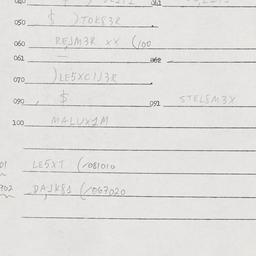 050 $ ) TOKS3R
060 REJM3R XX (100
061 — 062
070 ) LE5XCIJ3R
090 , $ 091 STELSM3X
100 MALUXJM
01 LE5XT (/081010
702 DAJKSJ (/067020